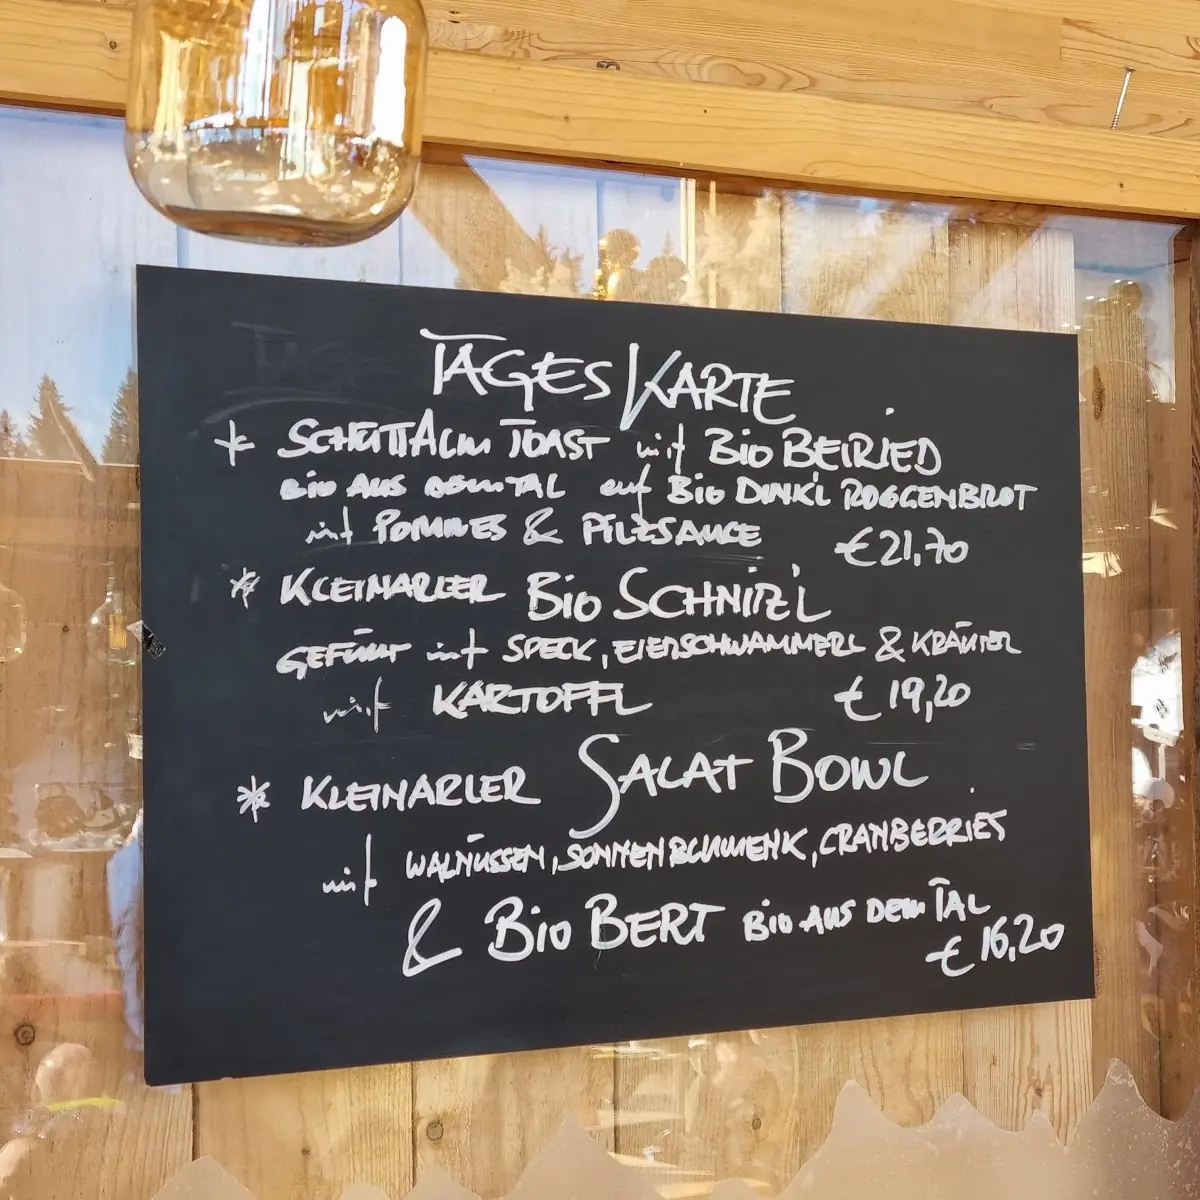 TAGES KARTE
* SCHÜTTALM TOAST mit BIO BEIRIED
BIO AUS DEM TAL auf BIO DINK'L ROGGENBROT
mit POMMES & PILZSAUCE €21,70
* KLEINARLER BIO SCHNITZ'L
GEFÜLLT mit SPECK, EIERSCHWAMMERL & KRÄUTER
mit KARTOFFL € 19,20
* KLEINARLER SALAT BOWL
mit WALNÜSSEN, SONNENBLUMENK, CRANBERRIES
& BIO BERT BIO AUS DEM TAL
€ 16,20